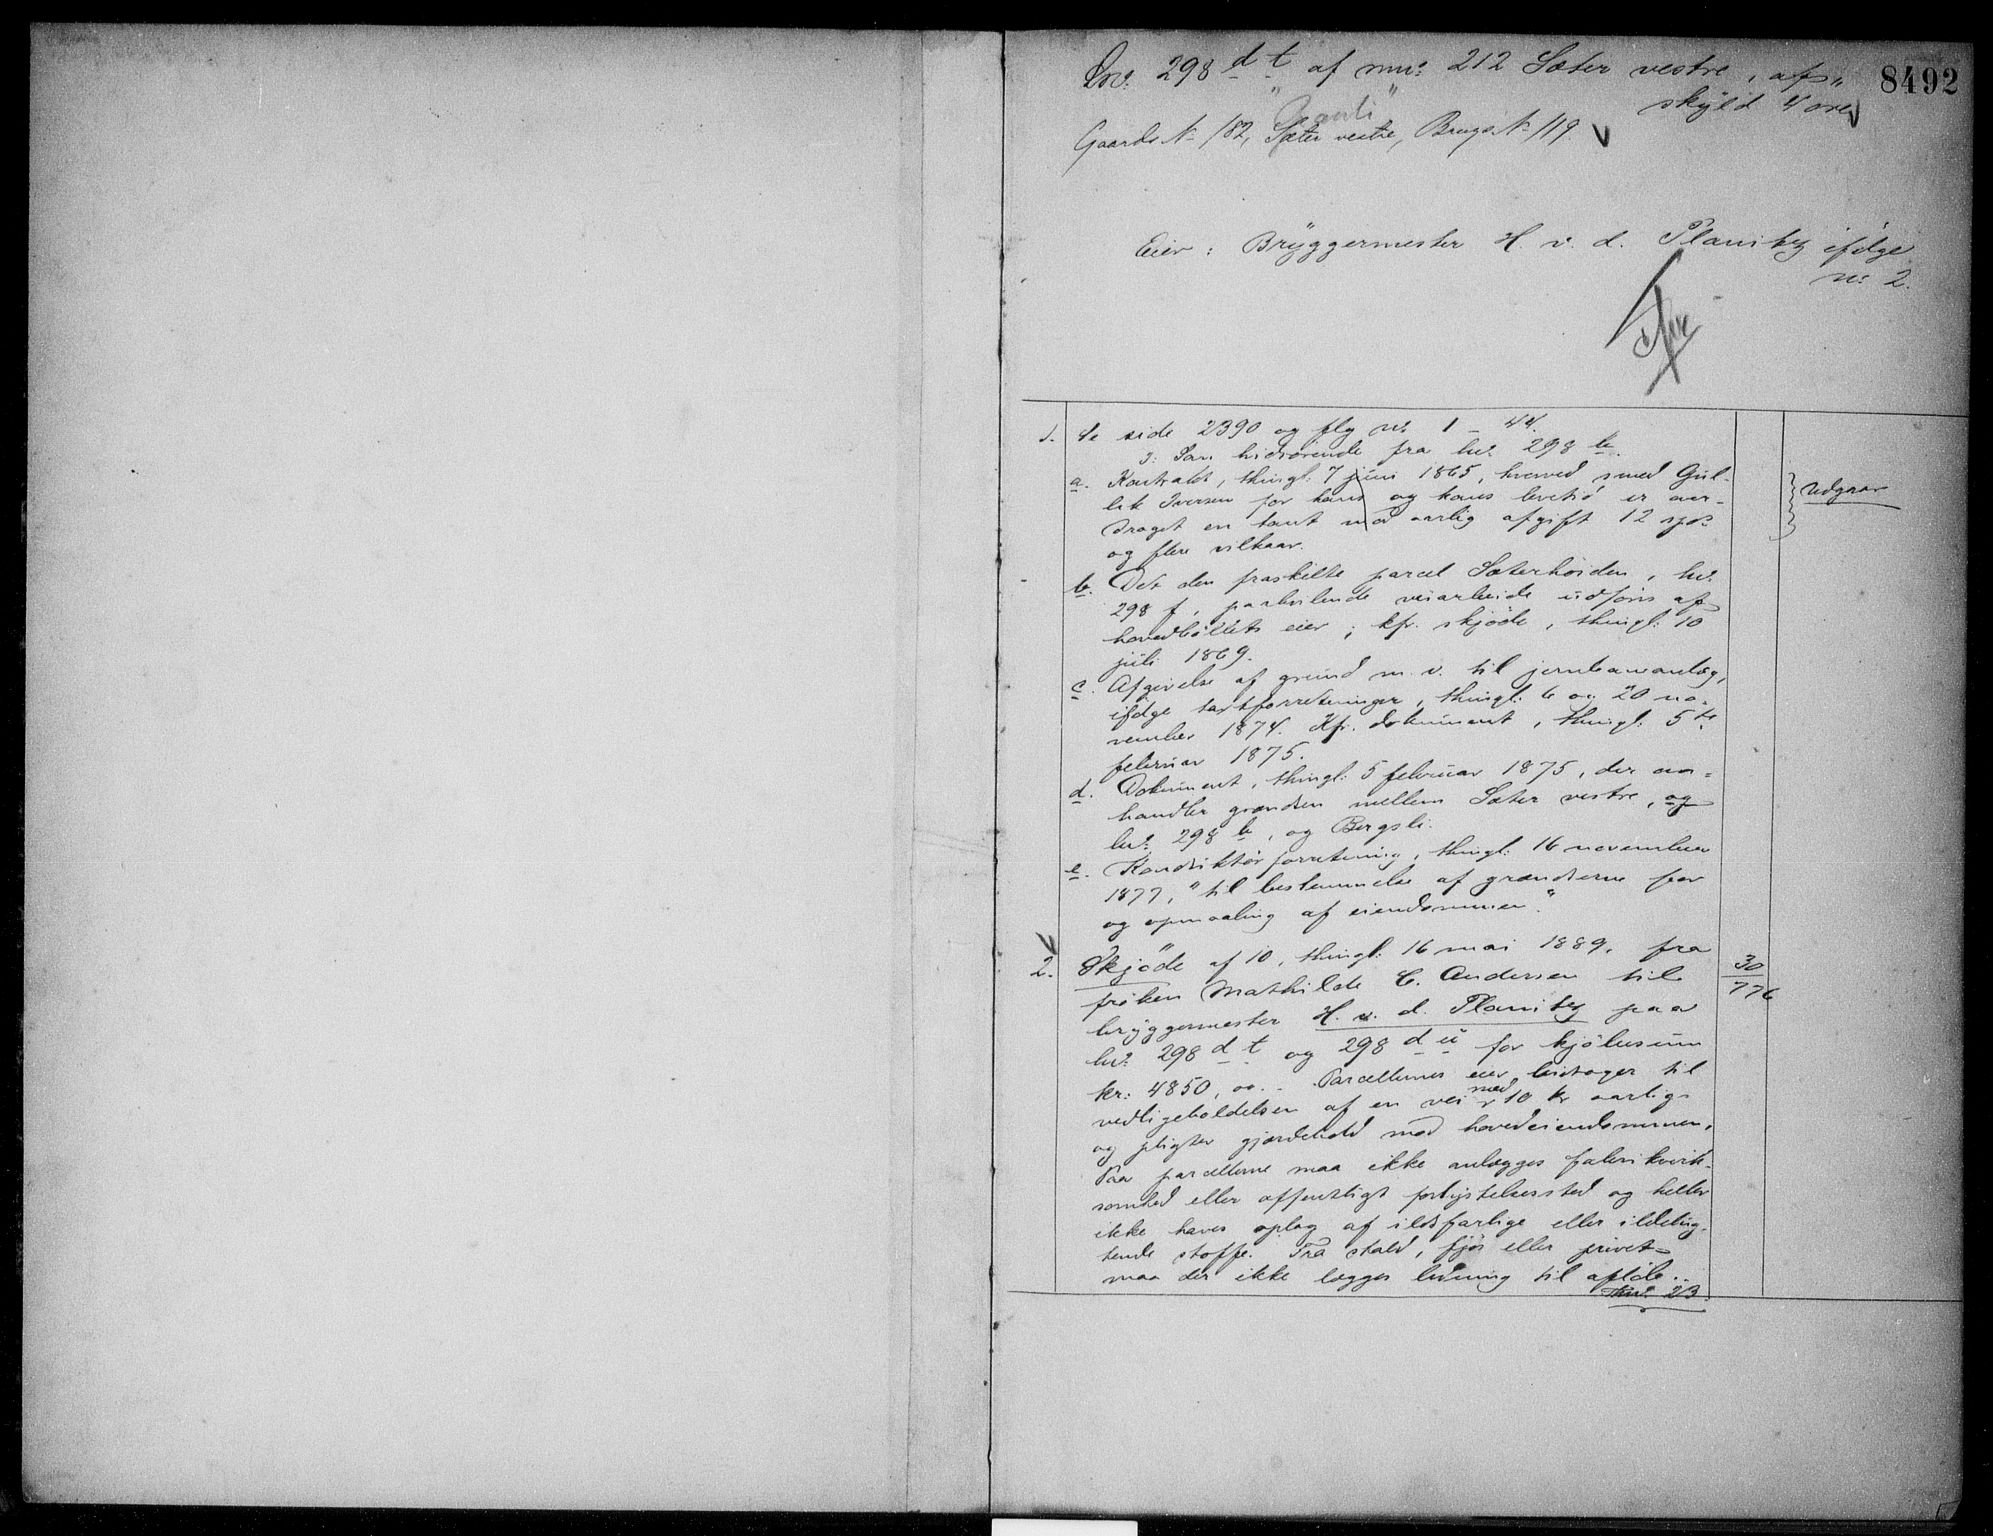 8492
Lnr. 298 d t af mnr. 212 Sæter vestre, afs„
skyld 4 øre
Gaards N 182, Sæter vestre, Brugs N 119.
Eier: Bryggermester H. v. d. Planitz ifølge
nr. 2.
1. Se side 2390 og flg nr. 1 – 44.
ɔ: Som hidrørende fra lnr. 298 b.
a. Kontrakt, thingl: 7 juni 1865, hvorved smed Gul-
lik Iversen for hans og kones levetid er over-
draget en tomt mod aarlig afgift 12 spd.
og flere vilkaar.
Udgaar
b. Det den fraskilte parcel Sæterheiden, lnr.
298 f, paahvilende veiarbeide udføres af
hovedbølets eier; kfr. skjøde, thingl: 10
juli 1869.
c. Afgivelse af grund m. v. til jernbaneanlæg,
ifølge taxtforretninger, thingl: 6 og 20 no-
vember 1874. Kfr. dokument, thingl: 5te
februar 1875.
d. Dokument, thingl: 5 februar 1875, der om-
handler grændsen mellem Sæter vestre, og
lnr. 298 b, og Bergsli.
e. Konduktørforretning, thingl: 16 november
1877, "til bestemmelse af grændserne for
og opmaaling af eiendommen."
2. Skjøde af 10, thingl: 16 mai 1889, fra
frøken Mathilde C. Andersen til
bryggermester H. v. d. Planitz paa
lnr. 298 d t og 298 d u for kjøbesum
kr: 4850,00. – Parcellernes eier bidrager til
vedligeholdelsen af en vei med 10 kr aarlig
og pligter gjærdehold mod hovedeiendommen.
Paa parcellerne maa ikke anlægges fabrikvirk-
somhed eller offentligt forlystelsessted og heller
ikke haves oplag af ildsfarlige eller ildelug-
tende stoffe. Fra stald, fjøs eller privet
maa der ikke lægges ledning til afløb..
30
776